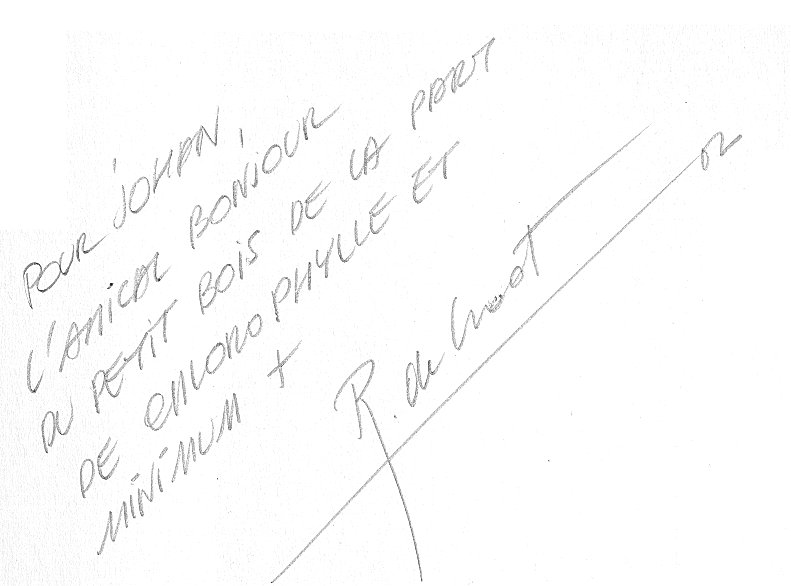 POUR JOHAN,
L'AMICAL BONJOUR
DU PETIT BOIS DE LA PART
DE CHLOROPHYLLE ET
MINIMUM +
R. de
02